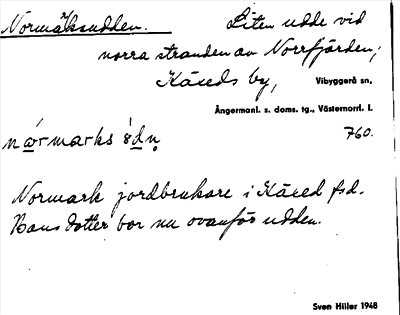 Normarksudden. Liten udde vid
norra stranden av Norrfjärden;
Käxeds by, Vibyggerå sn,
Ångermanl. s. doms. tg., Västernorrl. l.
760.
Normark jordbrukare i Käxed fsd.
Hans dotter bor nu ovanför udden.
Sven Hiller 1948